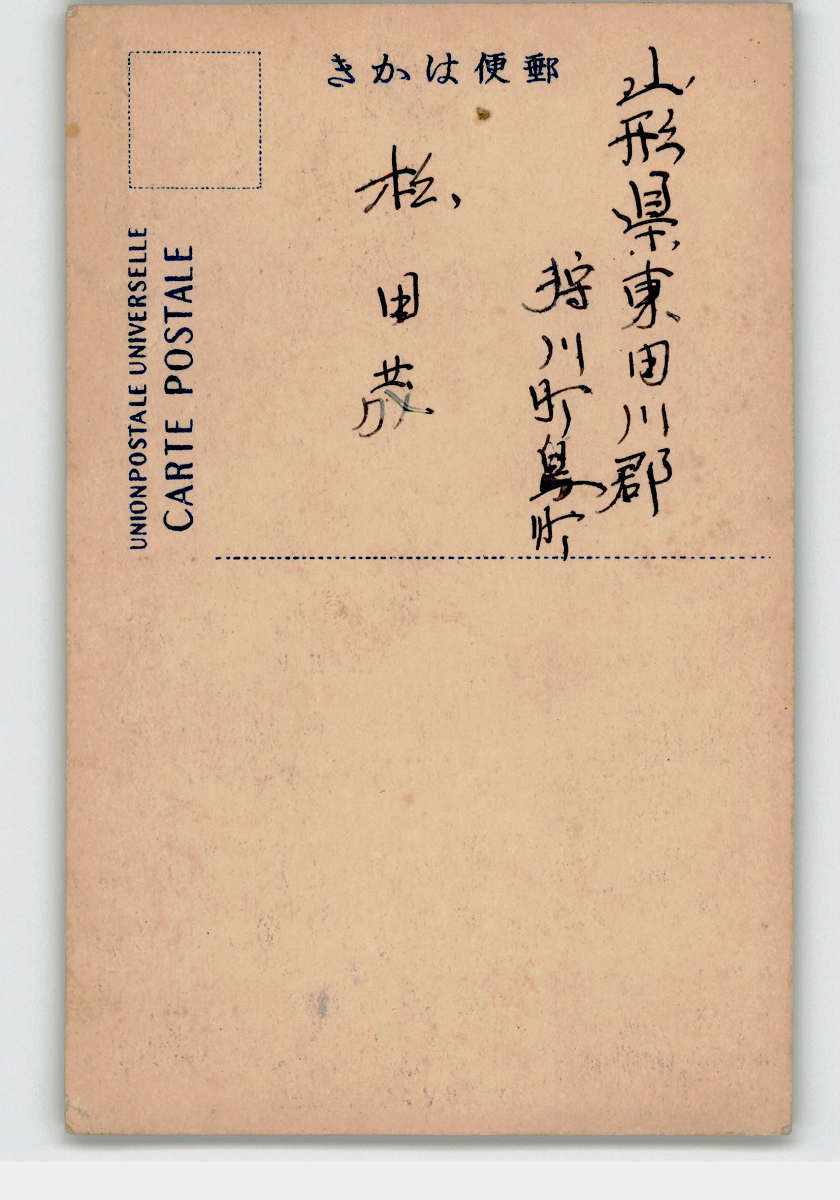 きかは便郵
山形県東田川郡
狩川町鳥町
松田茂
UNION POSTALE UNIVERSELLE
CARTE POSTALE